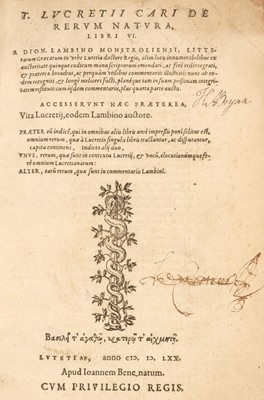 T. LVCRETII CARI DE
RERVM NATVRA,
LIBRI VI.
A DION. LAMBINO MONSTROLIENSI, LITTE-
rarum Græcarum in vrbe Lutetia doctore Regio, olim locis innumerabilibus ex
auctoritate quinque codicum manu scriptorum emendati, ac ferè redintegrati,
& præterea breuibus, ac perquàm vtilibus commentariis illustrati: nunc ab eo-
dem recogniti, & longè meliores facti, planéque iam in suam pristinam integri-
tatem restituti: cum iisdem commentariis, plus quarta parte auctis.
ACCESSERVNT HÆC PRÆTEREA,
Vita Lucretij, eodem Lambino auctore.
PRÆTER eū indicē, qui in omnibus aliis libris antè impressis poni solitus est,
omnium rerum, quæ à Lucretio singulis libris tractantur, ac disputantur,
capita continens, indices alij duo,
VNVS, rerum, quæ sunt in contextu Lucretij, & vocū, elocutionúmque fe-
rè omnium Lucretianarum:
ALTER, earū rerum, quæ sunt in commentariis Lambini.
Βασιλεῖ τ' ἀγαθῷ, κρατερῷ τ' αἰχμητῇ.
LVTETIAE, anno CIↃ IↃ LXX.
Apud Ioannem Bene-natum.
CVM PRIVILEGIO REGIS.